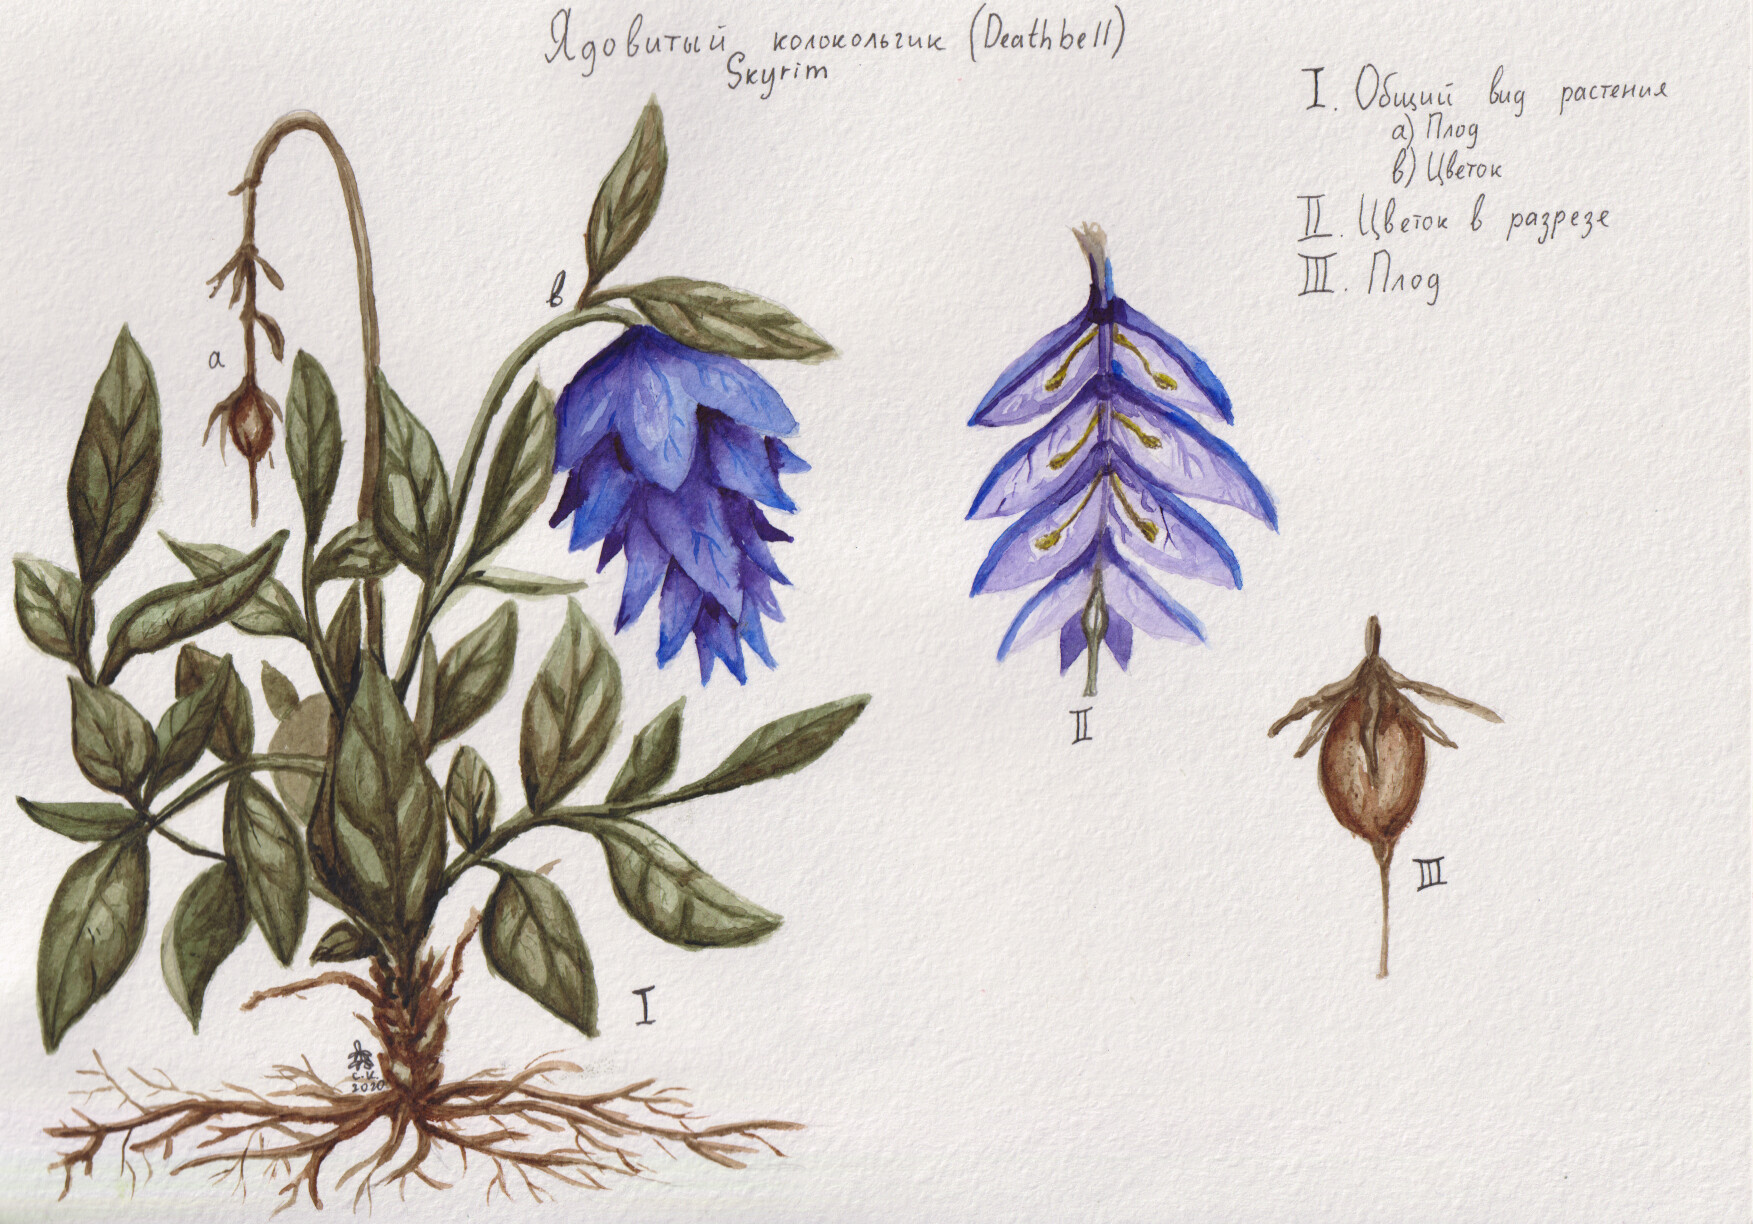 Ядовитый колокольчик (Deathbell)
Skyrim
I. Общий вид растения
а) Плод
в) Цветок
II. Цветок в разрезе
III. Плод
а
в
II
III
I
С.К.
2020